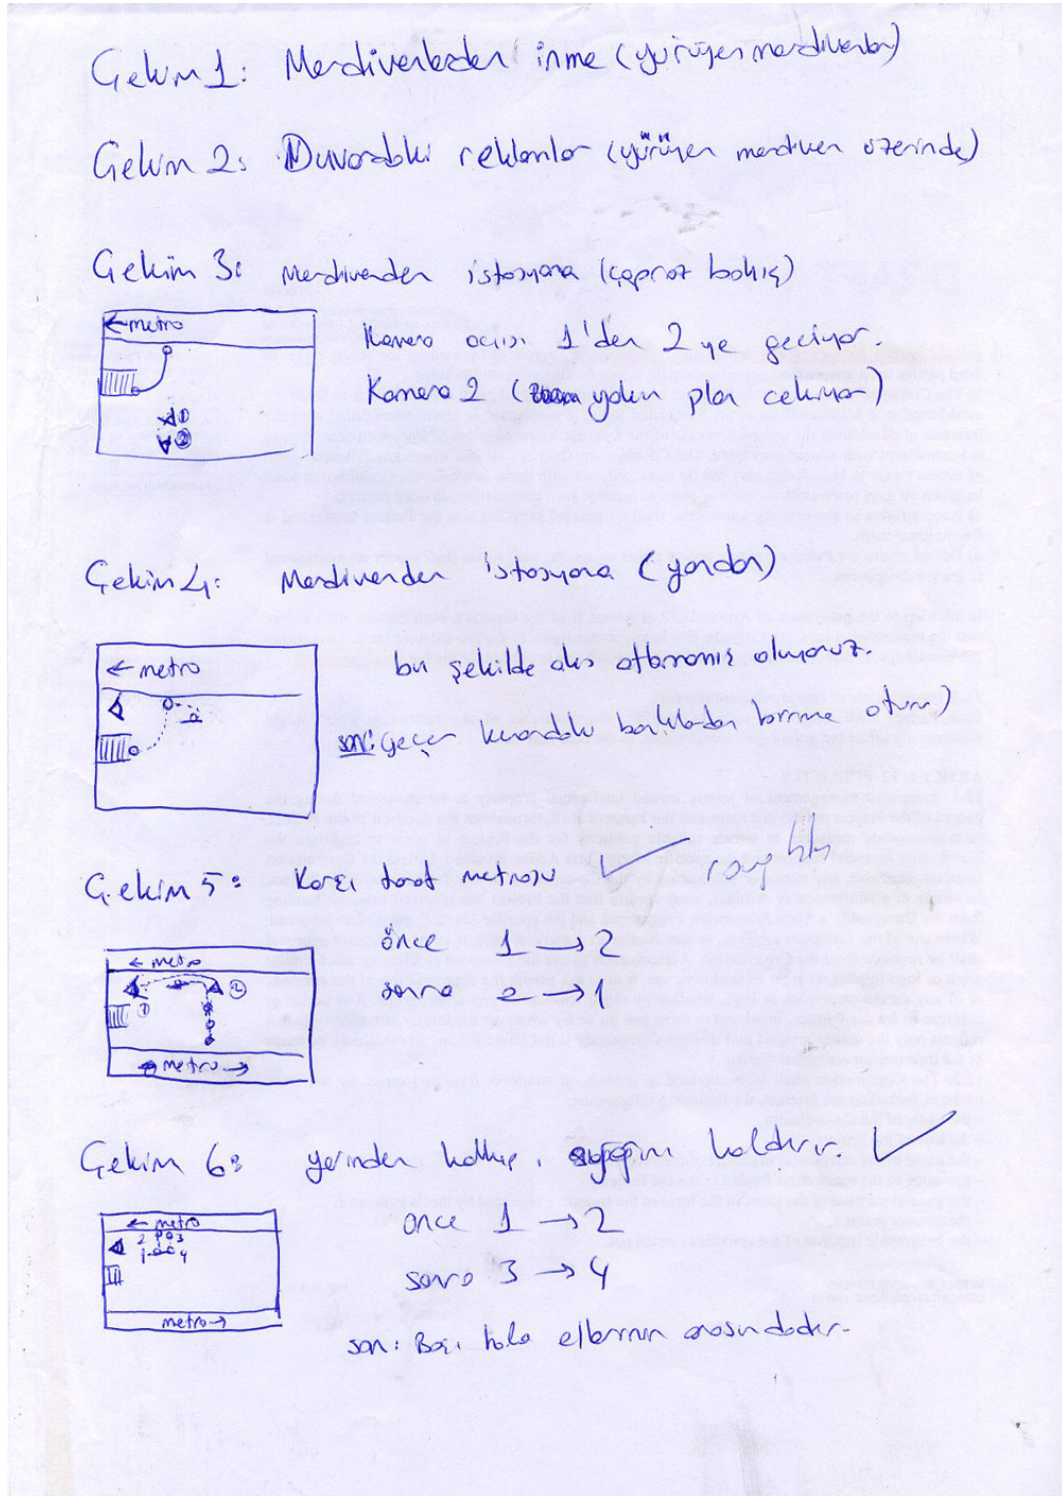 Çekim 1: Merdivenlerden inme (yürüyen merdivenler)
Çekim 2: Duvardaki reklamlar (yürüyen merdiven üzerinde)
Çekim 3: Merdivenden istasyona (çapraz bakış)
← metro
Kamera açısı 1'den 2 ye geçiyor.
Kamera 2 (yakın plan çekiyor)
1
2
Çekim 4: Merdivenden istasyona (yandan)
← metro
bu şekilde aks atlamamış oluyoruz.
son: Geçer kenardaki banklardan birine oturur)
Çekim 5: Karşı taraf metrosu
← metro
önce 1 → 2
1 2
sonra 2 → 1
metro →
Çekim 6: yerinden kalkıp, kaldırır.
← metro
önce 1 → 2
2 3
1 4
sonra 3 → 4
metro →
son: Başı hala ellerinin arasındadır.